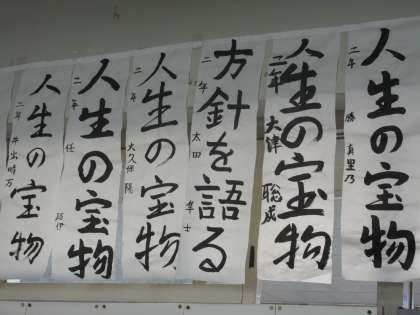 人生の宝物
二年 勝 真里乃
人生の宝物
二年 大津 聡成
方針を語る
二年 太田 隼士
人生の宝物
二年 大久保 陽
人生の宝物
二年 任
人生の宝物
二年 井出時万